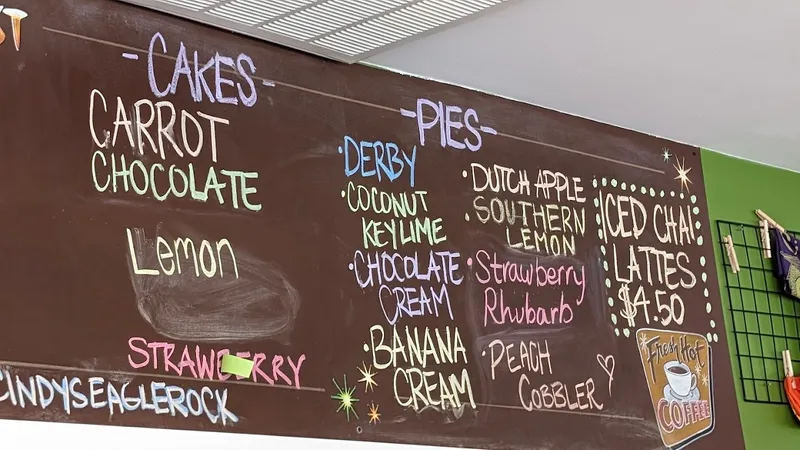 -CAKES-
CARROT
CHOCOLATE
Lemon
STRAWBERRY
CINDYSEAGLEROCK
-PIES-
·DERBY
·COCONUT
KEY LIME
·CHOCOLATE
CREAM
·BANANA
CREAM
·DUTCH APPLE
·SOUTHERN
LEMON
·Strawberry
Rhubarb
·PEACH
COBBLER
ICED CHAI
LATTES
$4.50
Fresh Hot
COFFEE